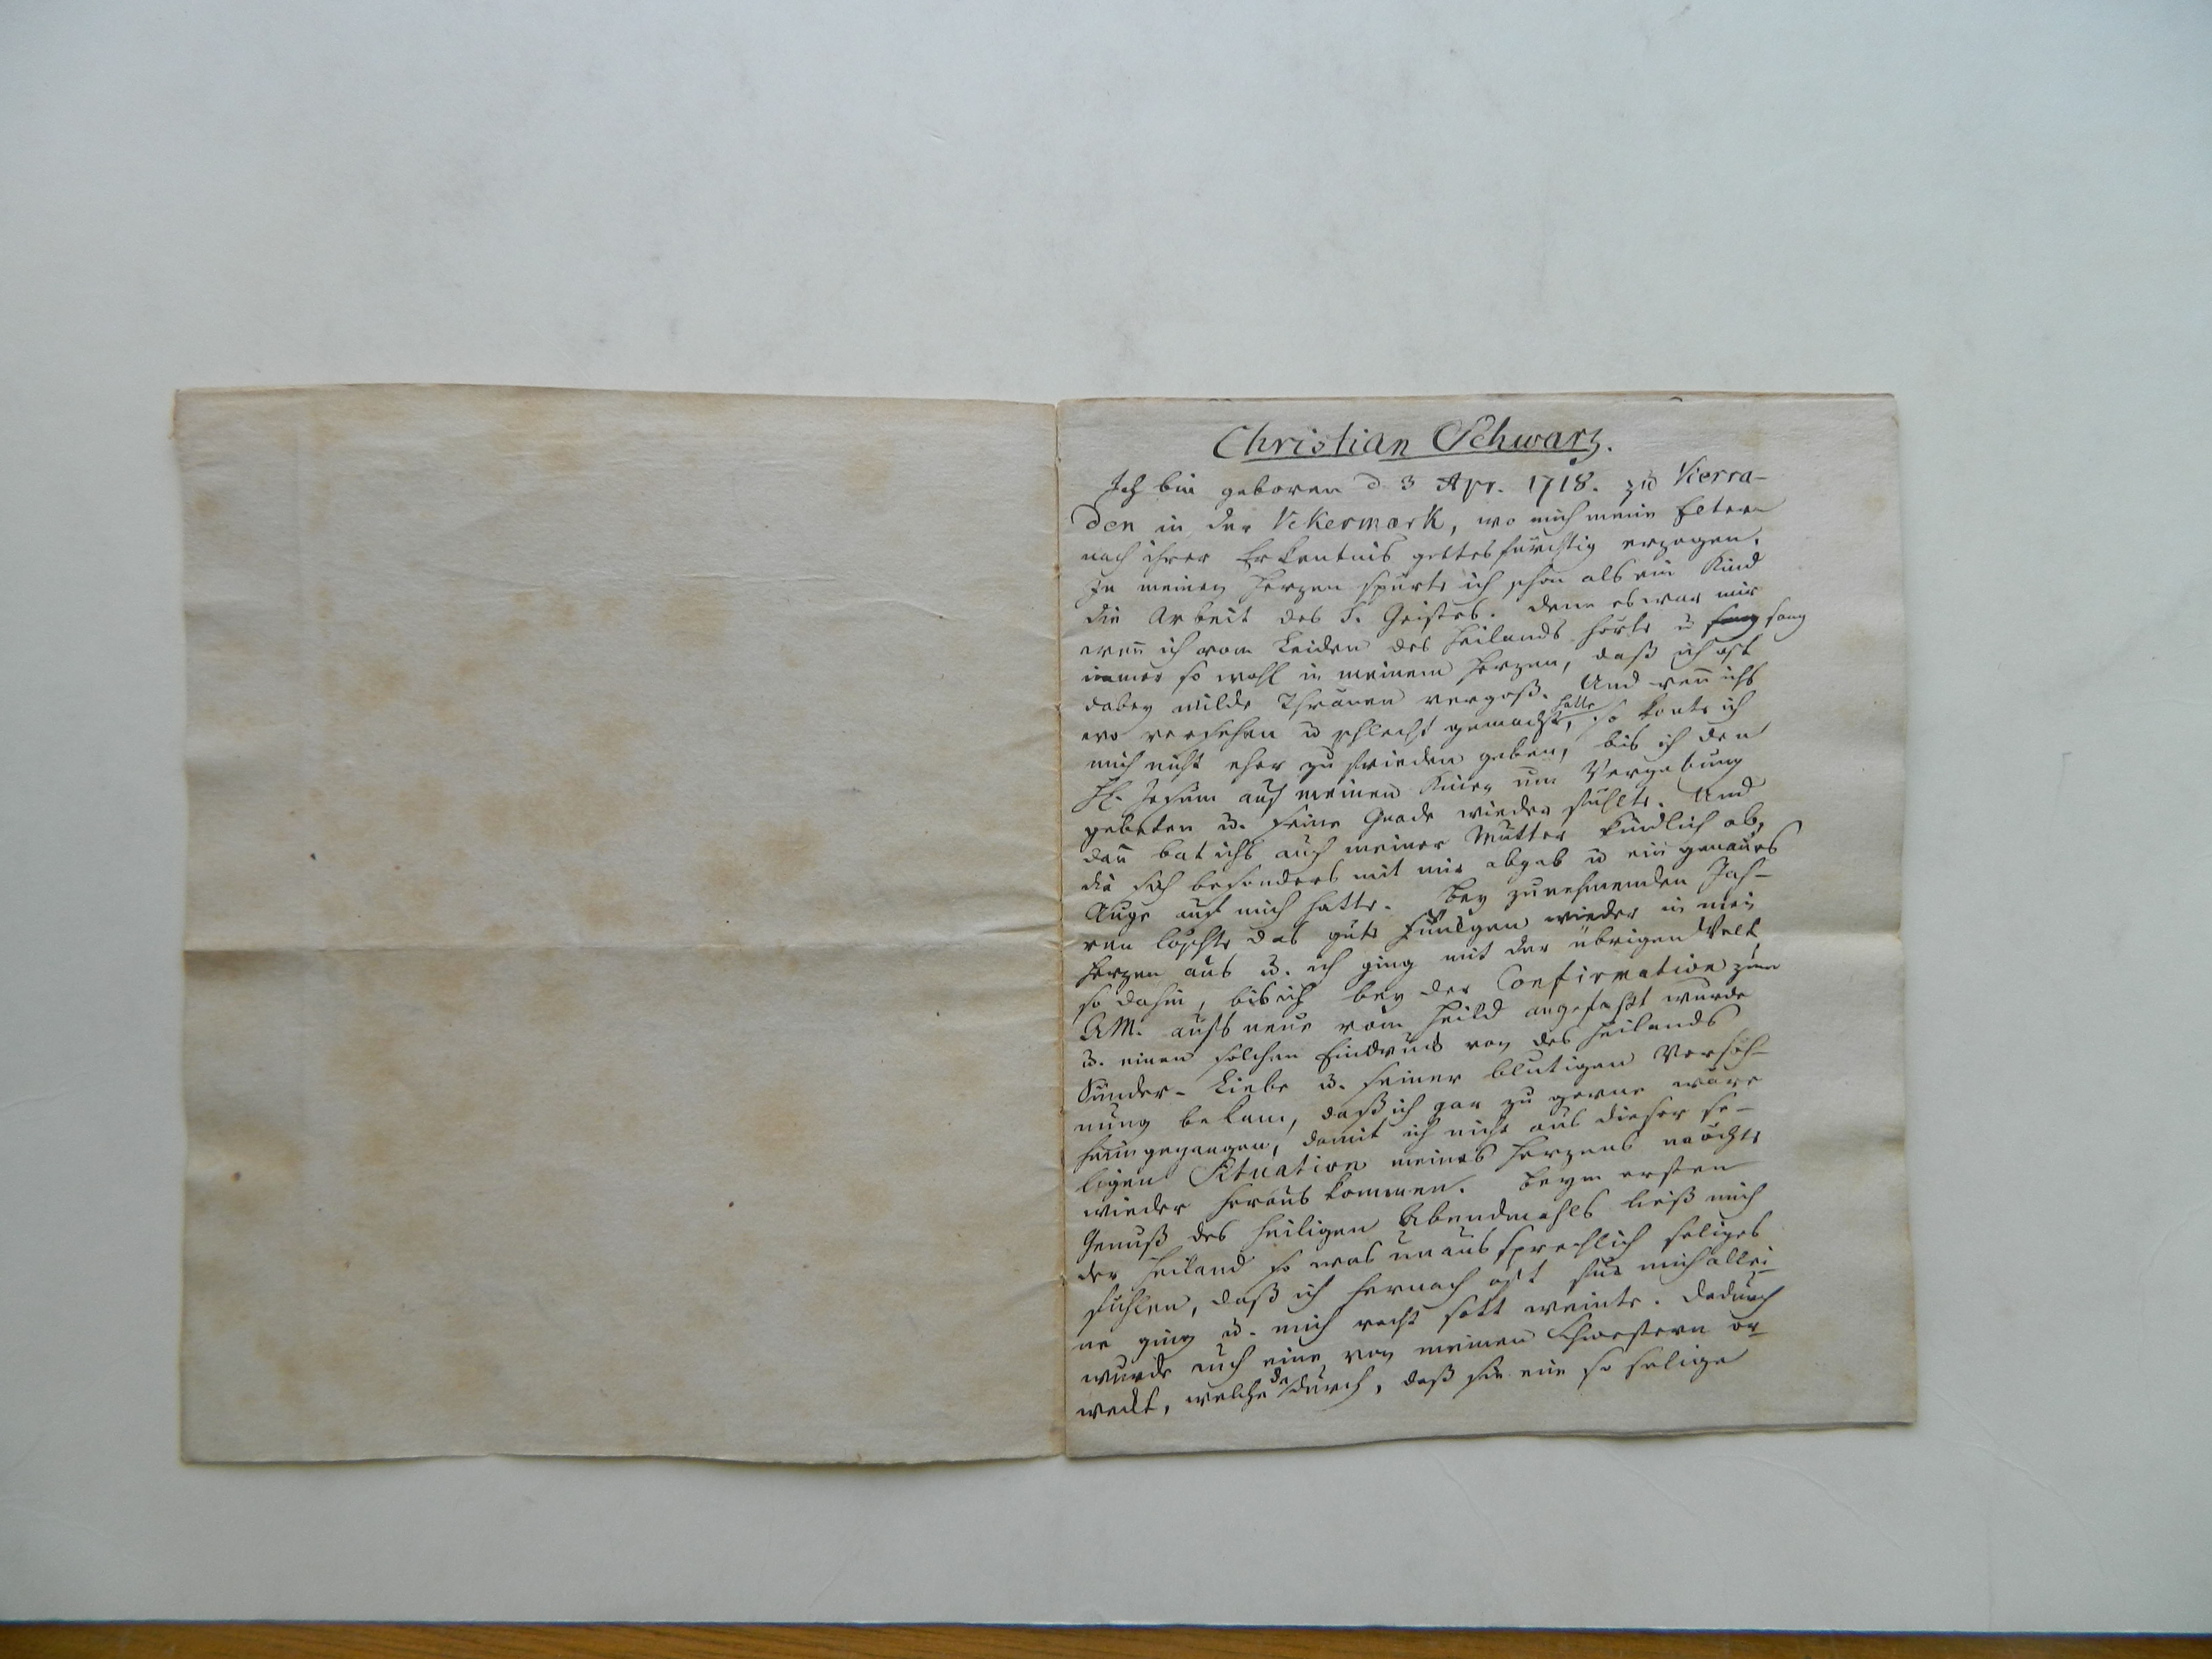 Christian Schwarz.
Ich bin geboren d 3 Apr. 1718. zu Vierra-
den in der Vckermark, wo mich meine Eltern
nach ihrer Erkentnis gottesfürchtig erzogen.
In meinen Herzen spürte ich schon als ein Kind
die Arbeit des h. Geistes. denn es war mir
wen̄ ich vom Leiden des Heilands hörte u sang sang
immer so wohl in meinem Herzen, daß ich oft
dabey milde Thränen vergoß. Und wen̄ ichs
wo versehen u schlecht gemacht hatte, so konte ich
mich nicht eher zu frieden geben, bis ich den
Hl. Jesum auf meinen Knien um Vergebung
gebeten u. seine Gnade wieder fühlte. Und
dan̄ bat ichs auch meiner Mutter kindlich ab,
die sich besonders mit mir abgab u ein genaues
Auge auf mich hatte. Bey zunehmenden Jah-
ren löschte das gute Fünkgen wieder in mein
Herzen aus u. ich ging mit der übrigen Welt
so dahin, bis ich bey der Confirmation zum
AM. aufs neue vom Heild angefaßt wurde
u. einen solchen Eindruck von des Heilands
Sünder-Liebe u. seiner blutigen Versöh-
nung bekam, daß ich gar zu gerne wäre
heimgegangen, damit ich nicht aus dieser se-
ligen Situation meines Herzens möchte
wieder heraus kommen. Beym ersten
Genuß des heiligen Abendmahls ließ mich
der Heiland so was unaussprechlich seliges
fühlen, daß ich hernach oft für mich allei-
ne ging u. mich recht satt weinte. Dadurch
wurde auch eine von meinen Schwestern er-
weckt, welche dadurch, daß sie eine so selige